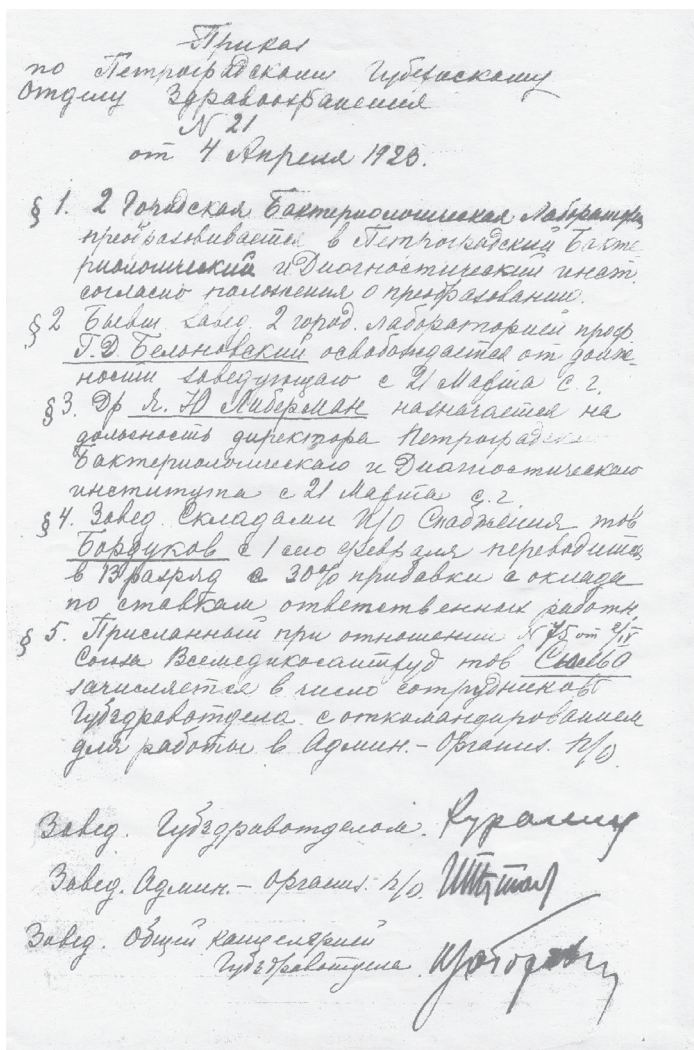 Приказ
по Петроградскому Губернскому
Отделу Здравоохранения
N 21
от 4 Апреля 1923.
§ 1. 2 Городская Бактериологическая Лаборатория
преобразовывается в Петроградский Бакте
риологический и Диагностический инст.
согласно положения о преобразовании.
§ 2 Бывш. завед. 2 город. Лабораторией проф
Г. Д. Белоновский освобождается от долж-
ности заведующаго с 21 Марта с. г.
§ 3. Др Я. Ю Либерман назначается на
должность директора Петроградско
Бактериологическаго и Диагностическаго
института с 21 Марта с. г
§ 4. Завед. Складами П/О Снабжения тов
Бордуков с 1 сего февраля переводится
в 13 разряд с 30% прибавки с оклада
по ставкам ответственных работн
§ 5. Присланный при отношении N 75 от 2/IV
Союза Всемедикосантруд тов
зачисляется в число сотрудников
Губздравотдела с откомандированием
для работы в Админ. - Организ. п/о.
Завед. Губздравотделом.
Завед. Админ. - организ. п/о.
Завед. Общей канцелярией
Губздравотдела